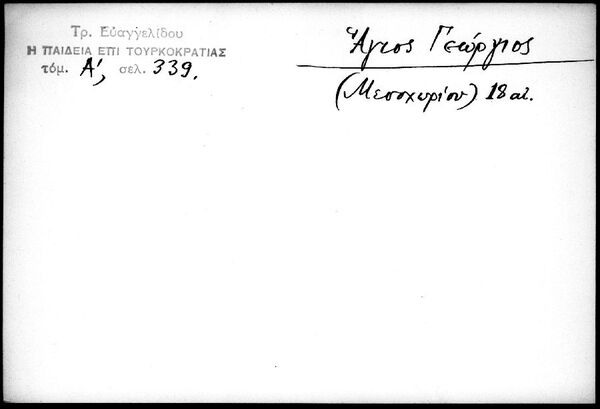 Τρ. Εὐαγγελίδου
Η ΠΑΙΔΕΙΑ ΕΠΙ ΤΟΥΡΚΟΚΡΑΤΙΑΣ
τόμ. Α', σελ. 339.
Ἅγιος Γεώργιος
(Μεσοχωρίου) 18 αἰ.